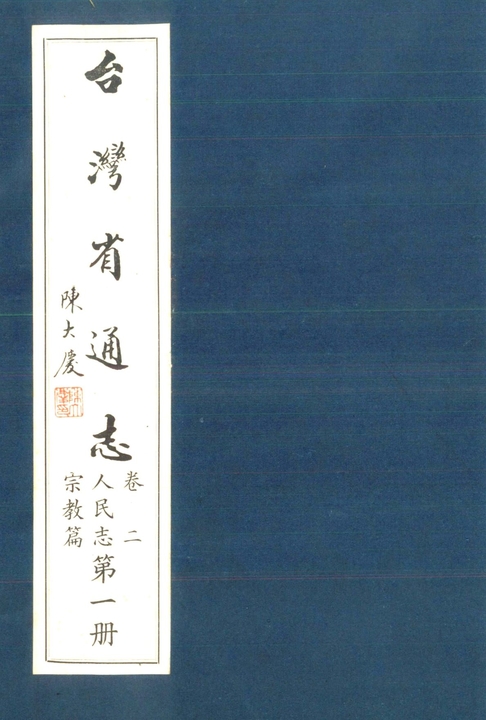 台灣省通志
卷二
人民志
宗教篇
第一册
陳大慶